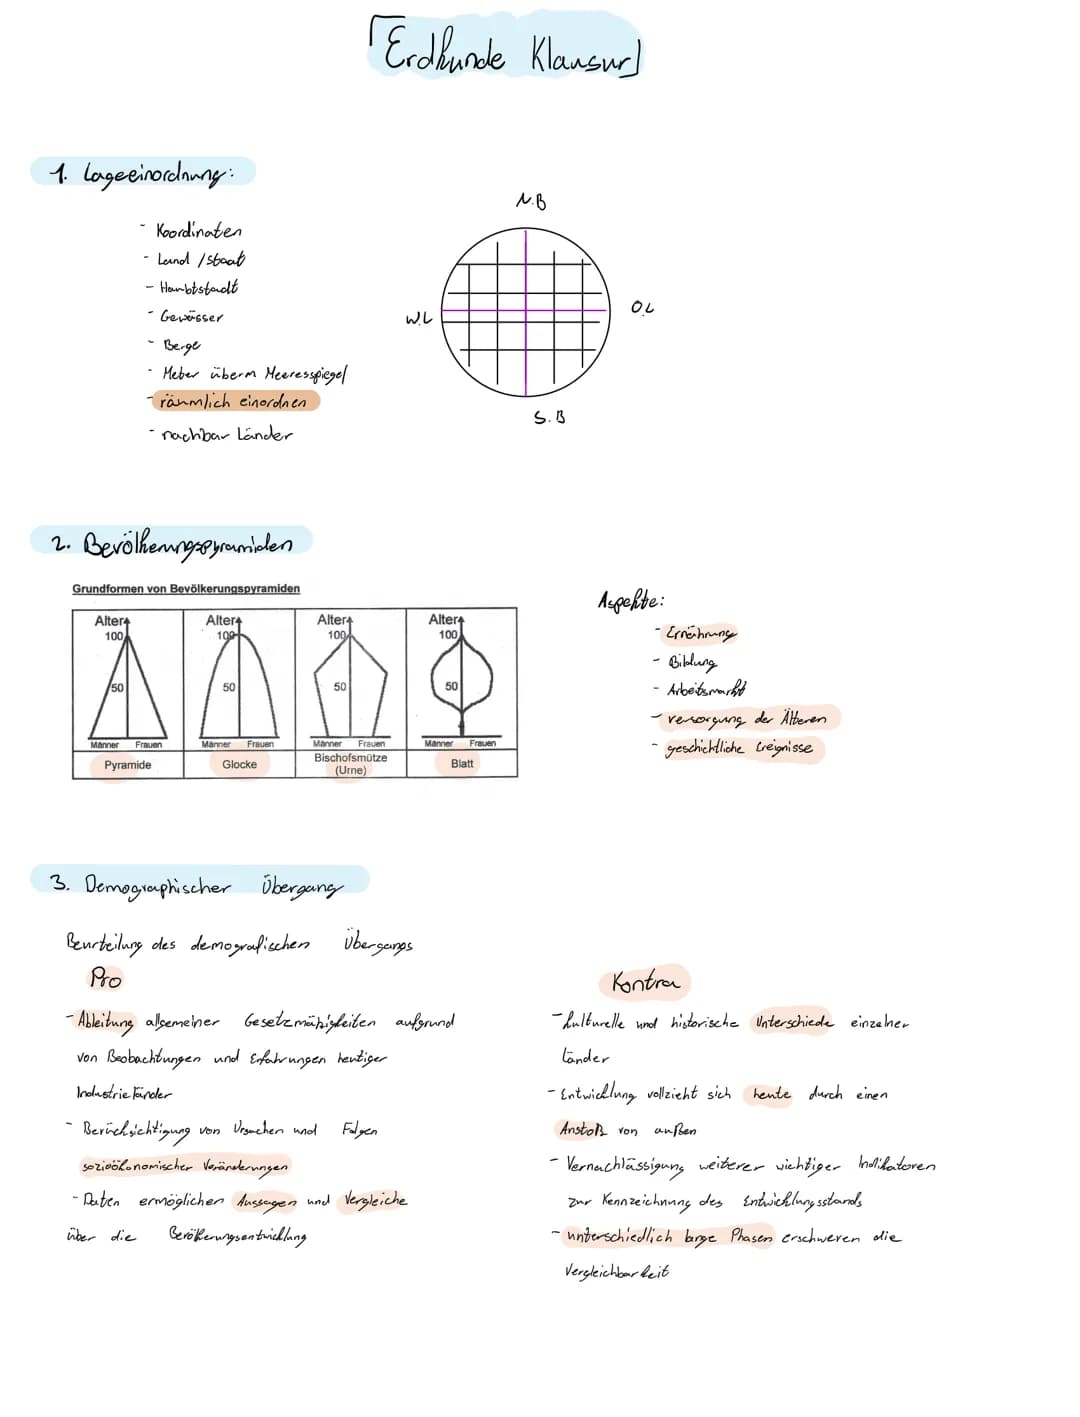 「Erdkunde Klausur」
1. Lageeinordnung:
- Koordinaten
- Land / Staat
- Hambtstadt
- Gewässer
- Berge
- Meber überm Meeresspiegel
- räumlich einordnen
- nachbar Länder
N.B
W.L
O.L
S.B
2. Bevölkerungspyramiden
Grundformen von Bevölkerungspyramiden
Alter Alter Alter Alter
100 100 100 100
50 50 50 50
Männer Frauen Männer Frauen Männer Frauen Männer Frauen
Pyramide Glocke Bischofsmütze (Urne) Blatt
Aspekte:
- Ernährung
- Bildung
- Arbeitsmarkt
- versorgung der Älteren
- geschichtliche Ereignisse
3. Demographischer Übergang
Beurteilung des demografischen Übergangs
Pro
- Ableitung allgemeiner Gesetzmäßigkeiten aufgrund
von Beobachtungen und Erfahrungen heutiger
Industrieländer
- Berücksichtigung von Ursachen und Folgen
sozioökonomischer Veränderungen
- Daten ermöglichen Aussagen und Vergleiche
über die Bevölkerungsentwicklung
Kontra
- kulturelle und historische Unterschiede einzelner
Länder
- Entwicklung vollzieht sich heute durch einen
Anstoß von außen
- Vernachlässigung weiterer wichtiger Indikatoren
zur Kennzeichnung des Entwicklungsstands
- unterschiedlich lange Phasen erschweren die
Vergleichbarkeit